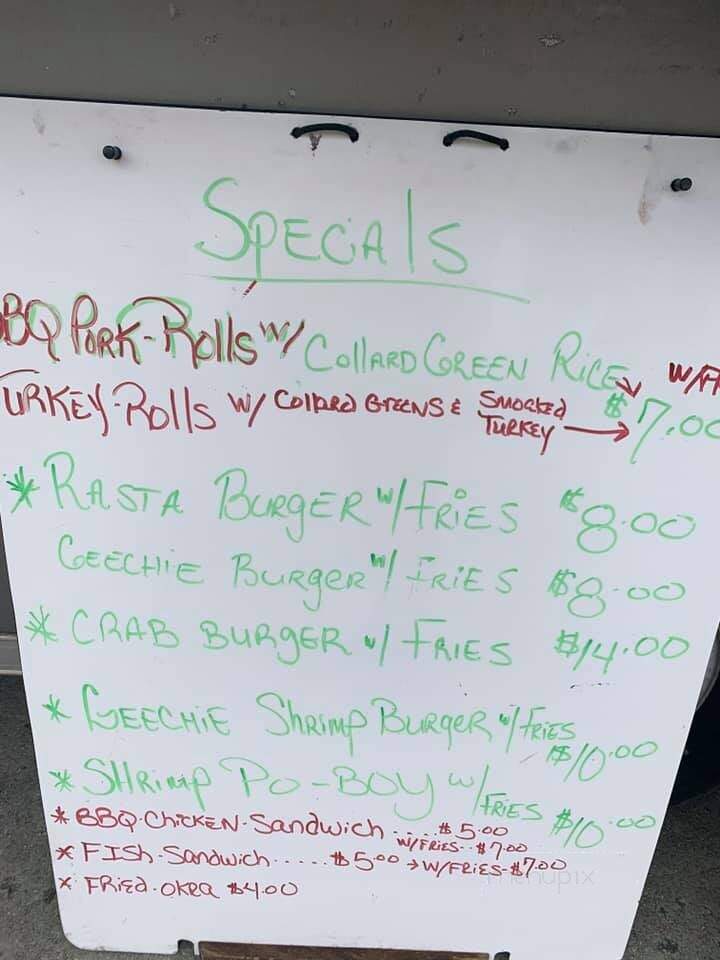 Specials
BBQ Pork-Rolls w/ Collard Green Rice
Turkey-Rolls w/ Collard Greens & Smoked Turkey → $7.00
* Rasta Burger w/ Fries $8.00
Geechie Burger w/ Fries $8.00
* Crab Burger w/ Fries $14.00
* Geechie Shrimp Burger w/ Fries $10.00
* Shrimp Po-Boy w/ Fries $10.00
* BBQ-Chicken-Sandwich .... $5.00
w/Fries-- $7.00
* Fish-Sandwich ..... $5.00 → w/Fries-$7.00
* Fried-Okra $4.00
menupix